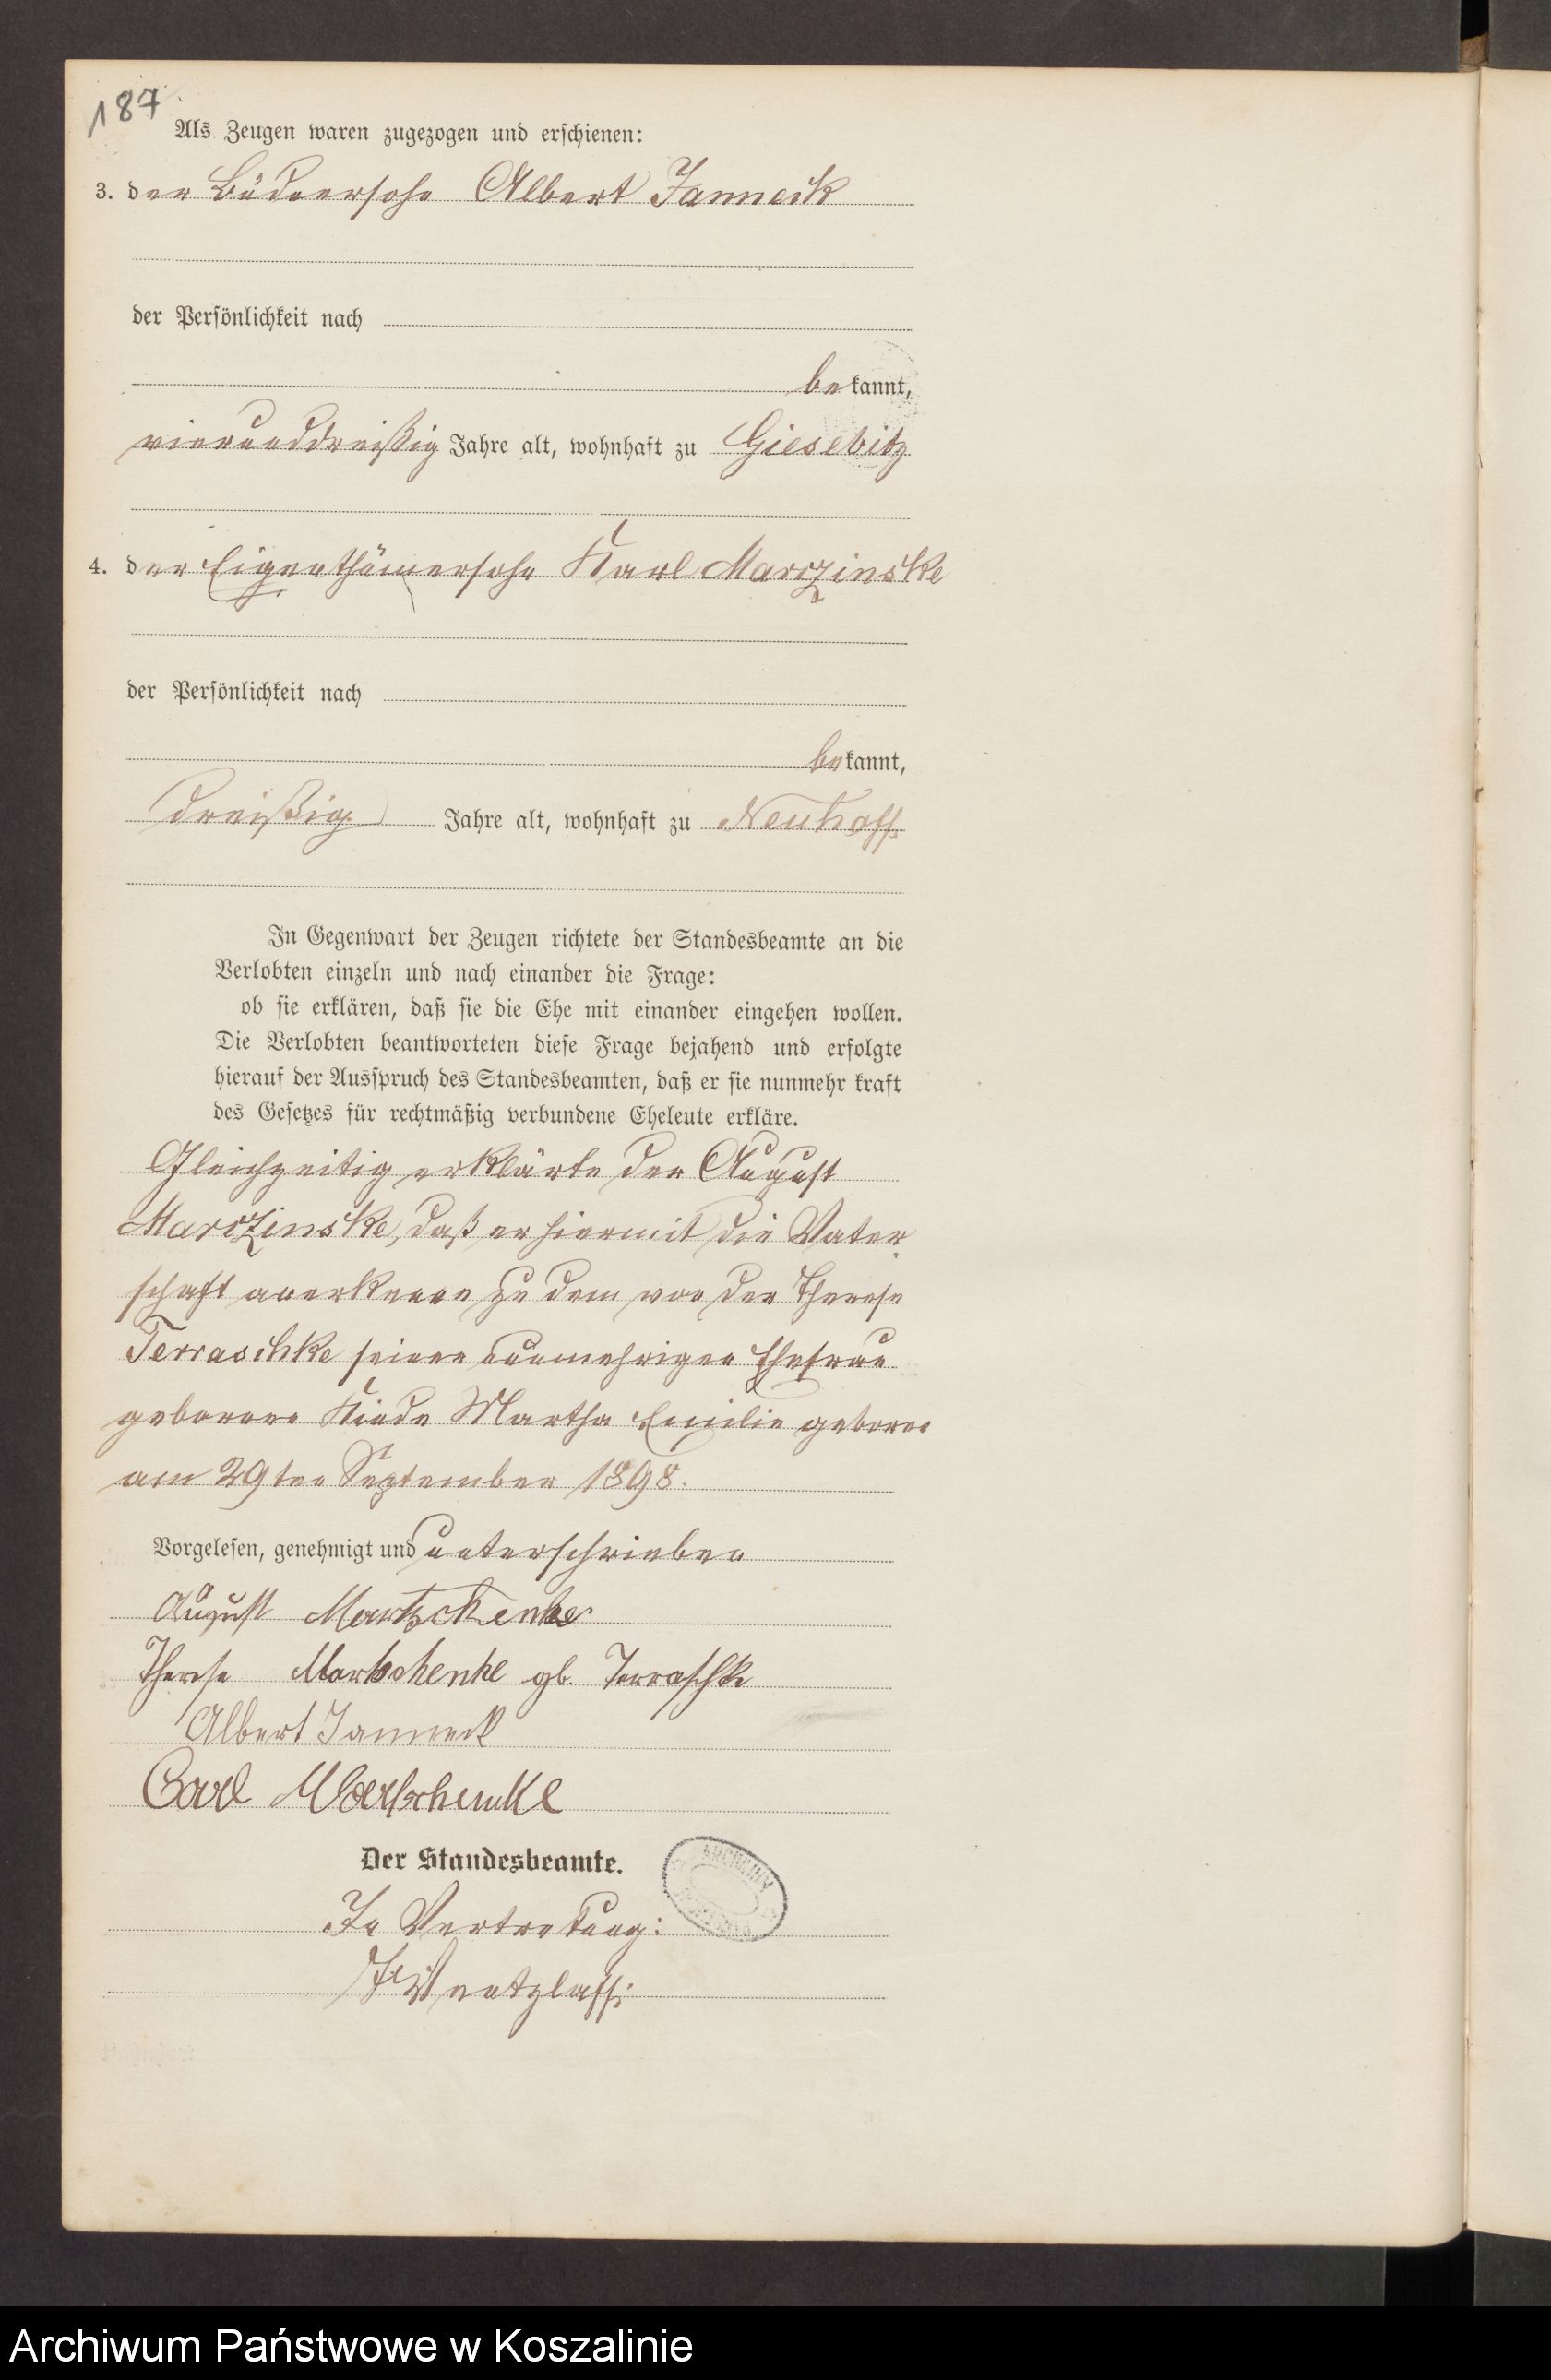 187
Als Zeugen waren zugezogen und erschienen:
3. der Büdnersohn Albert Janneck
der Persönlichkeit nach
bekannt,
vierunddreißig Jahre alt, wohnhaft zu Giesebitz
4. der Eigenthümersohn Karl Marczinske
der Persönlichkeit nach
bekannt,
dreißig Jahre alt, wohnhaft zu Neuhoff
In Gegenwart der Zeugen richtete der Standesbeamte an die
Verlobten einzeln und nach einander die Frage:
ob sie erklären, daß sie die Ehe mit einander eingehen wollen.
Die Verlobten beantworteten diese Frage bejahend und erfolgte
hierauf der Ausspruch des Standesbeamten, daß er sie nunmehr kraft
des Gesetzes für rechtmäßig verbundene Eheleute erkläre.
Gleichzeitig erklärte der August
Marczinske, daß er hiermit die Vater
schaft anerkenne zu dem von der Therese
Terraschke seiner nunmehrigen Ehefrau
geborene Kinde Martha Emilie geboren
am 29ten September 1898.
Vorgelesen, genehmigt und unterschrieben
August Martschenke
Therese Martschenke gb. Terraschke
Albert Janneck
Carl Martschenke
Der Standesbeamte.
In Vertretung:
Wentzlaff
Archiwum Państwowe w Koszalinie